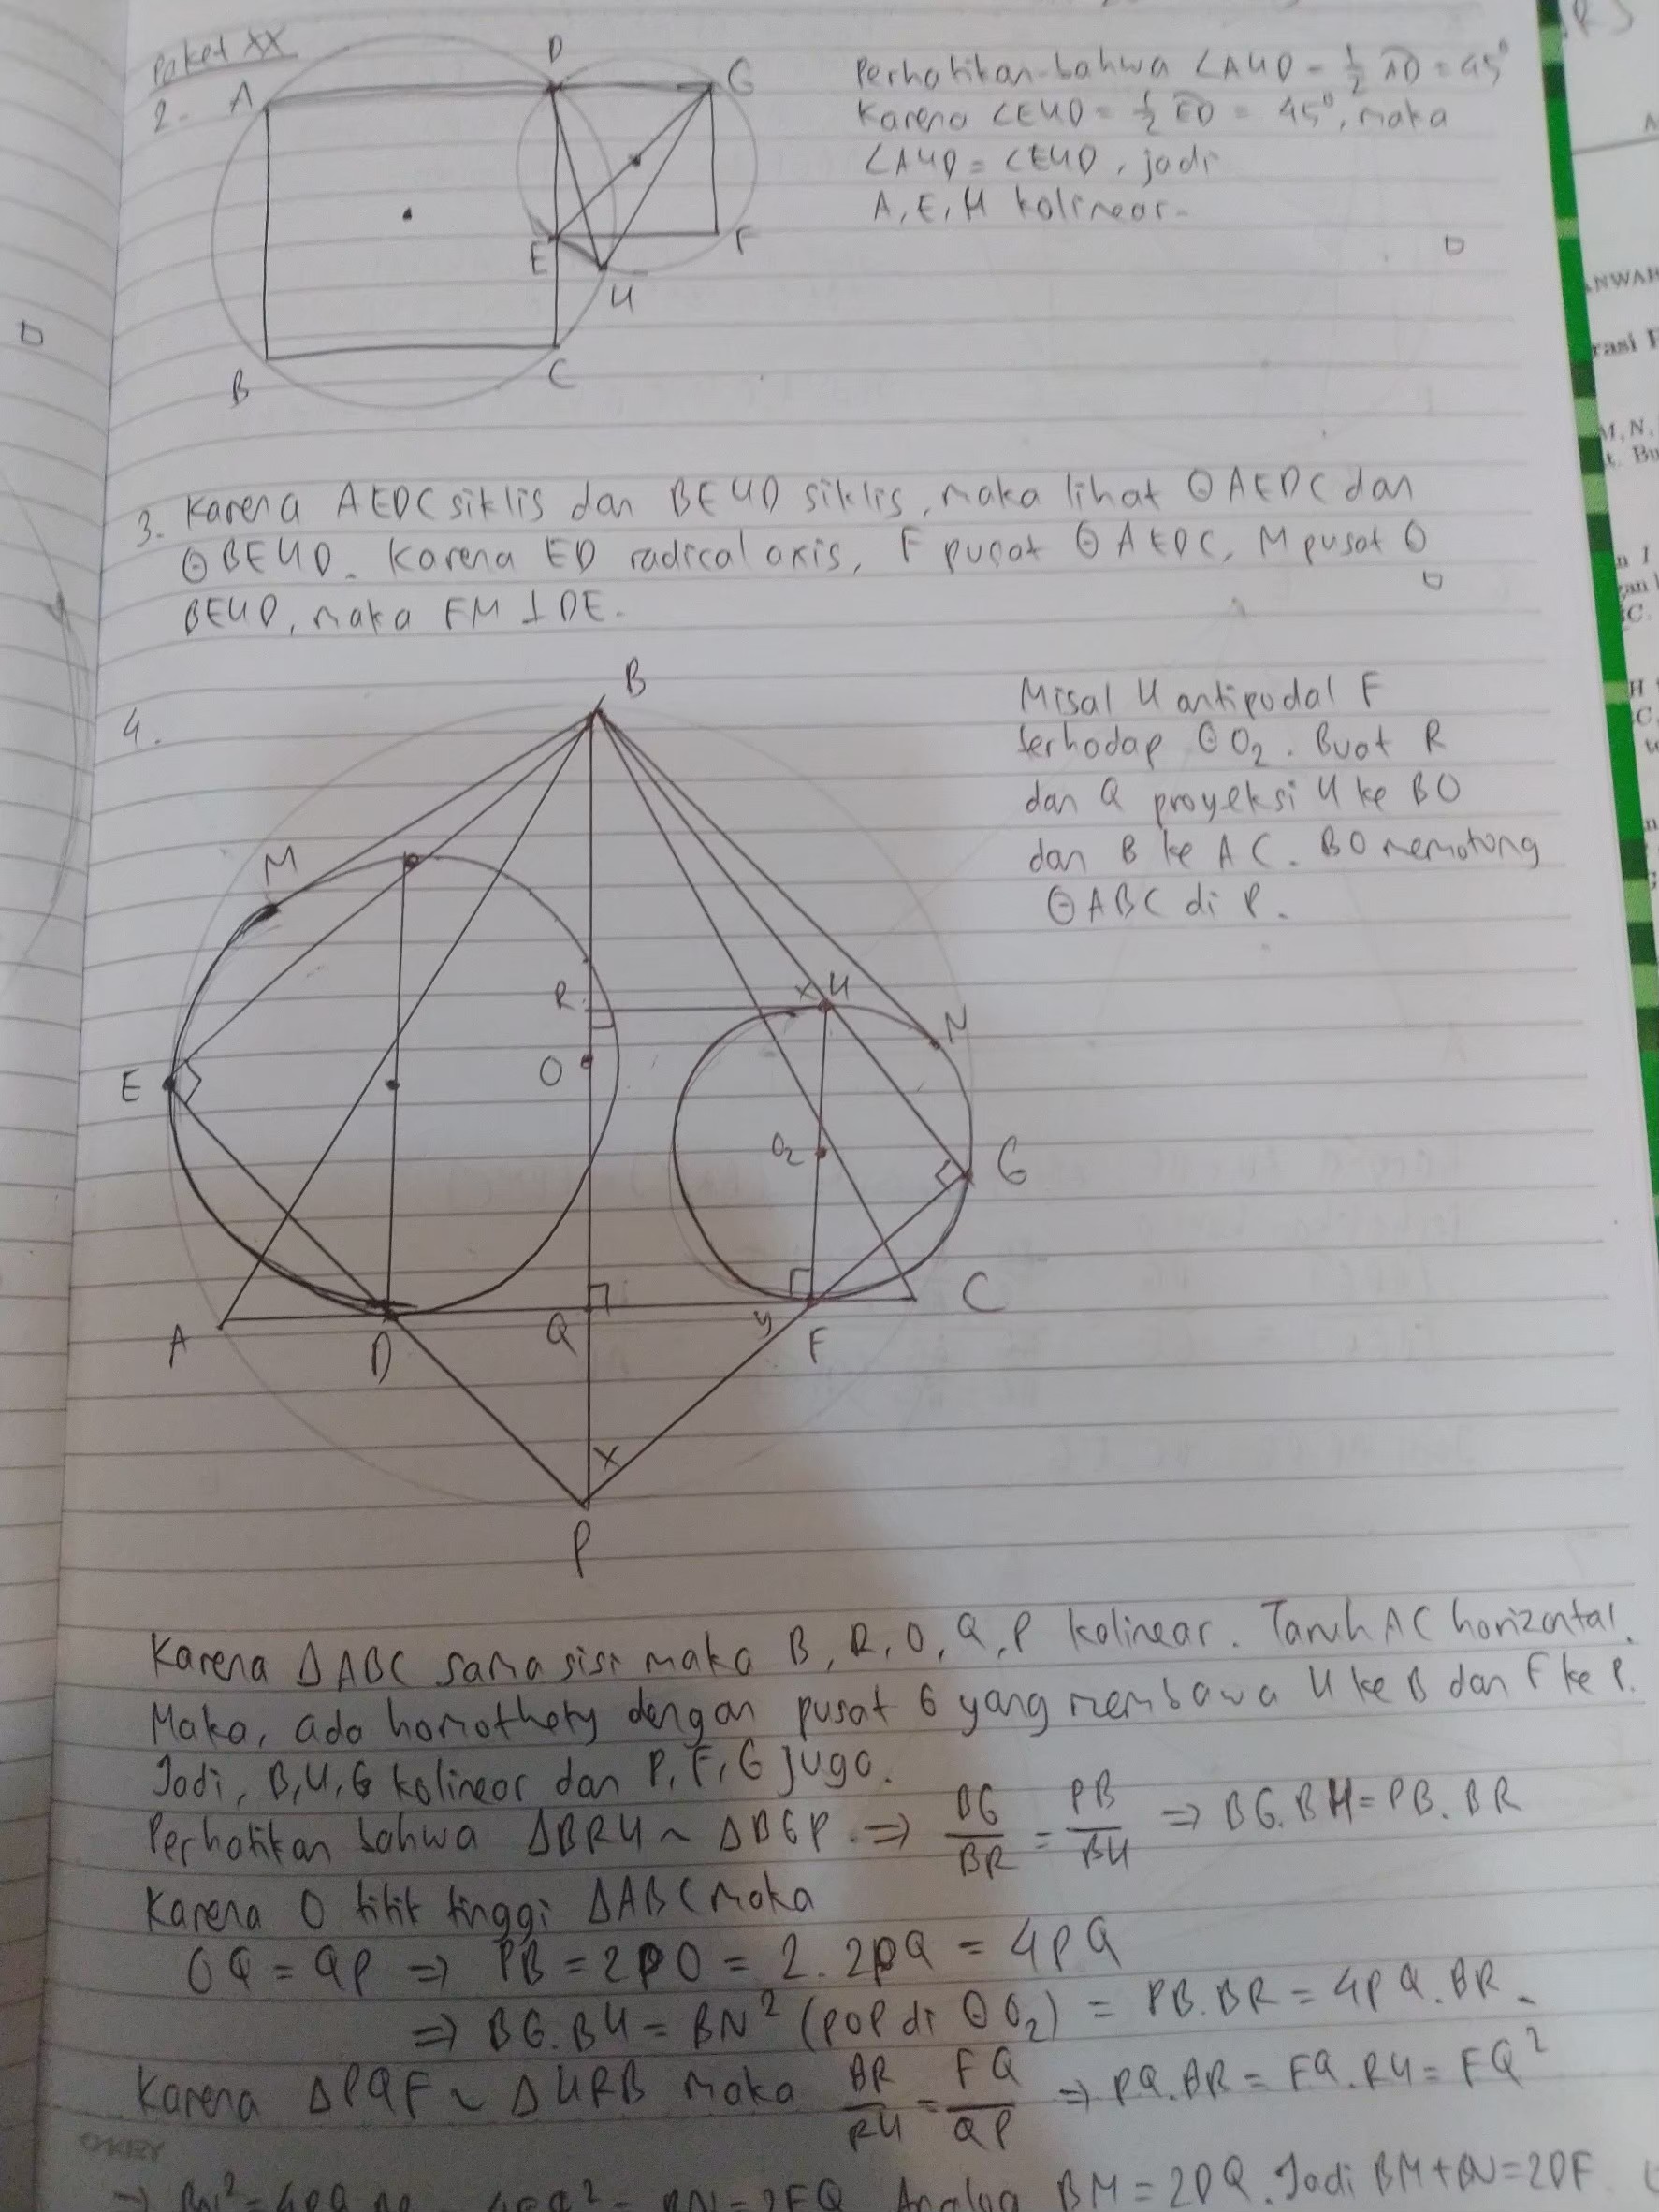 Paket XX
2.
A
D
G
E
F
H
B
C
Perhatikan bahwa ∠AHD = 1/2 AD = 45°
Karena ∠EHD = 1/2 ED = 45°, maka
∠AHD = ∠EHD, jadi
A, E, H kolinear.
3. Karena AEDC siklis dan BEHD siklis, maka lihat ⊙AEDC dan
⊙BEHD. Karena ED radical axis, F pusat ⊙AEDC, M pusat ⊙
BEHD, maka FM ⊥ DE.
4.
B
M
R
X
H
N
O
E
O2
G
A
D
Q
y
F
C
X
P
Misal H antipodal F
terhadap ⊙O2. Buat R
dan Q proyeksi H ke BO
dan B ke AC. BO memotong
⊙ABC di P.
Karena ΔABC sama sisi maka B, R, O, Q, P kolinear. Taruh AC horizontal.
Maka, ada homothety dengan pusat G yang membawa H ke B dan F ke P.
Jadi, B, H, G kolinear dan P, F, G juga.
Perhatikan bahwa ΔBRH ~ ΔBGP. ⇒ BG/BR = PB/BH ⇒ BG.BH = PB.BR
Karena O titik tinggi ΔABC maka
OQ = QP ⇒ PB = 2PO = 2.2PQ = 4PQ
⇒ BG.BH = BN² (POP di ⊙O2) = PB.BR = 4PQ.BR.
Karena ΔPQF ~ ΔHRB maka BR/RH = FQ/QP ⇒ PQ.BR = FQ.RH = FQ²
⇒ BN² = 4PQ.BR = 4FQ² = BN = 2FQ. Analog BM = 2DQ. Jadi BM+BN=2DF.
ANWAR
rasi
M, N,
t. Bu